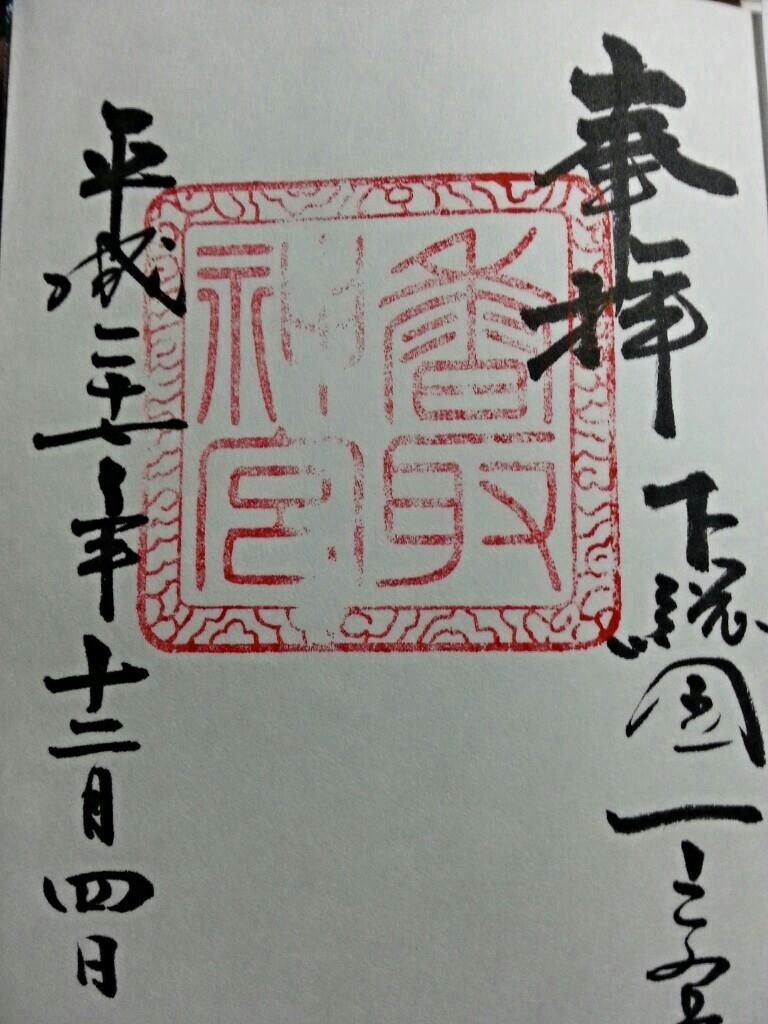 奉拝
下総国一之宮
香取
神宮
平成二十七年十二月四日